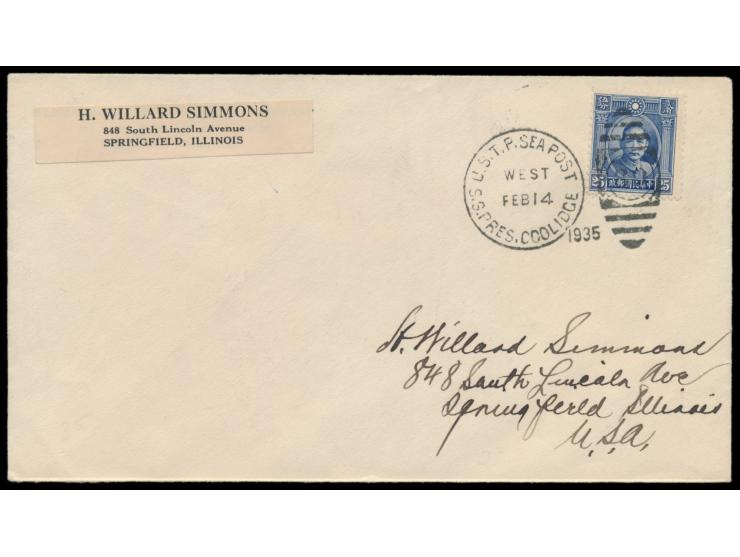 H. WILLARD SIMMONS
848 South Lincoln Avenue
SPRINGFIELD, ILLINOIS
U.S.T.P. SEA POST
WEST
FEB 14
S.S. PRES. COOLIDGE
1935
25 中華民國郵政 25
H. Willard Simmons
848 South Lincoln Ave
Springfield Illinois
U.S.A.